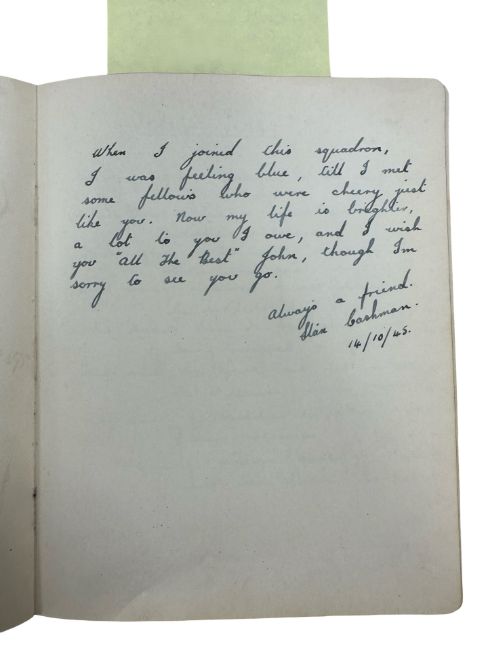 When I joined this squadron,
I was feeling blue, till I met
some fellows who were cheery just
like you. Now my life is brighter,
a lot to you I owe, and I wish
you "All The Best" John, though I'm
sorry to see you go.
Always a friend.
Stan Cashman.
14/10/45.